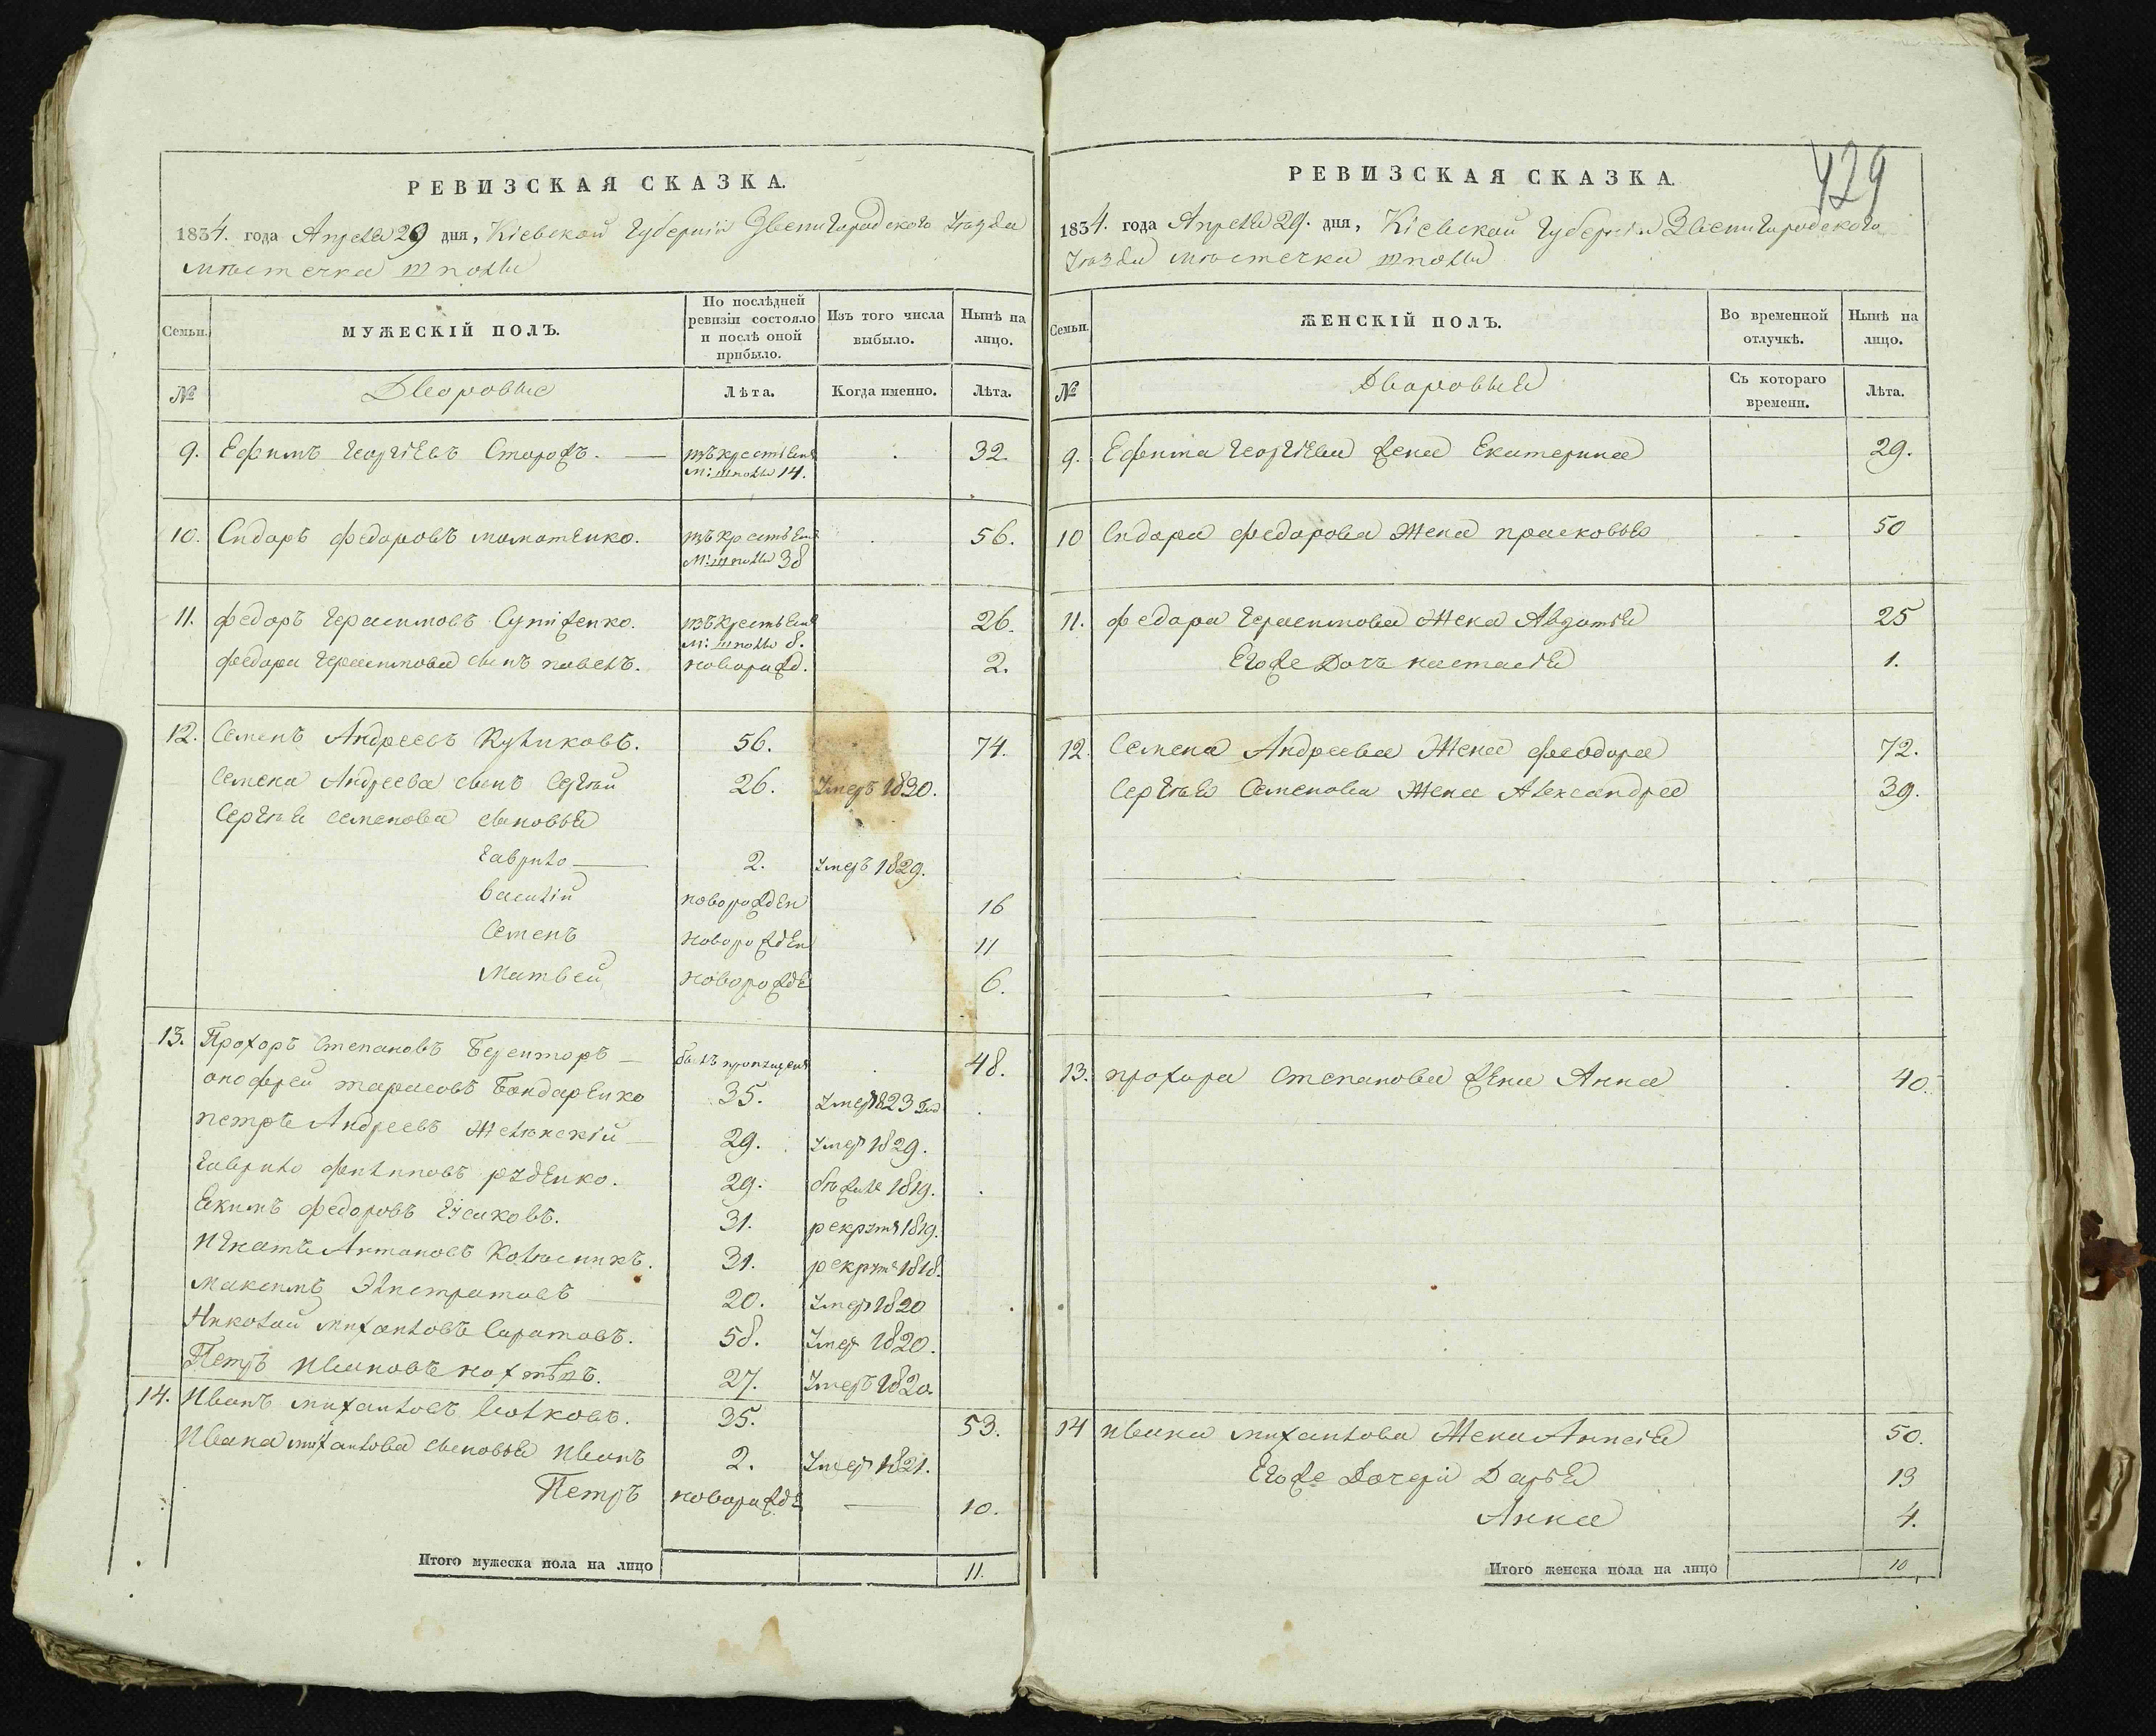 РЕВИЗСКАЯ СКАЗКА.
1834. года Апреля 29 дня, Кіевской Губерніи Звенигородского уезда
местечка шполы
Семьи.
МУЖЕСКІЙ ПОЛЪ.
По послѣдней ревизіи состояло и послѣ оной прибыло.
Изъ того числа выбыло.
Нынѣ на лицо.
№
Дворовые
Лѣта.
Когда именно.
Лѣта.
9. Ефимъ Георгіевъ Сторожъ. 32.
м: шполы 14.
10. Сидоръ федоровъ 56.
м: шполы 38
11. федоръ Герасимовъ 26.
м: шполы 8.
федора Герасимова сынъ павелъ. новорожд. 2.
12. Семенъ Андреевъ Куликовъ. 56. 74.
Семена Андреева сынъ Сергѣй 26. Умеръ 1830.
Сергѣя семенова сыновья
Гаврило 2. Умеръ 1829.
Василій новорожден 16
Семенъ новорожден 11
Матвей новорожде 6.
13. Прохоръ Степановъ 48.
онофрей тарасовъ Бондаренко 35. Умер 1823 год
петръ Андреевъ 29. Умер 1829.
Гаврило филиповъ руденко. 29. бѣжалъ 1819.
Екимъ федоровъ 31. рекрут 1819.
Игнатъ Антоновъ 31. рекрут 1818.
Максимъ 20. Умер 1820
Николай михайловъ Саратовъ. 58. Умер 1820.
Петръ Ивановъ 27. Умеръ 1820.
14. Иванъ михайловъ Волковъ. 35. 53.
Ивана михайлова сыновья Иванъ 2. Умер 1821.
Петръ новорожде 10.
Итого мужеска пола на лицо 11.
429
РЕВИЗСКАЯ СКАЗКА.
1834. года Апреля 29. дня, Кіевской Губерніи Звенигородского
уезда местечка шполы
Семьи.
ЖЕНСКІЙ ПОЛЪ.
Во временной отлучкѣ.
Нынѣ на лицо.
№
Дворовые
Съ котораго времени.
Лѣта.
9. Ефима Георгіева жена Екатерина 29.
10 Сидора федорова Жена прасковья 50
11. федора Герасимова Жена Авдотья 25
Его же Дочъ настасія 1.
12. Семена Андреева Жена феодора 72.
Сергѣя Семенова Жена Александра 39.
13. прохора Степанова жена Анна 40.
14 ивана михайлова Жена 50.
Его же Дочери Дарія 13
Анна 4.
Итого женска пола на лицо 10